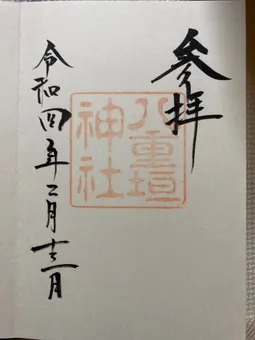 参拝
八重垣
神社
令和四年二月十三日